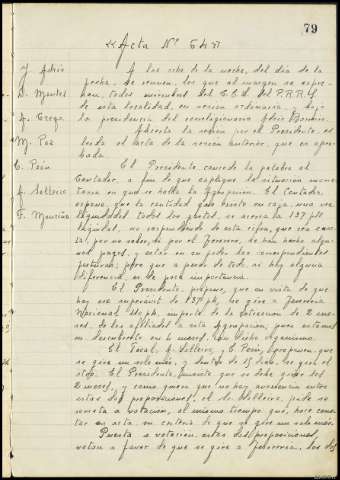 79
"Acta Nº 54"
J. Adrio
D. Montes
J. Crespo
M. Paz
C. Peón
J. Sellers
F. Mouriño
A las ocho de la noche, del día de la
fecha, se reunen, los que al margen se expre-
san, todos miembros del C.E. del P.R.R.G.
de esta localidad, en sesión ordinaria, y bajo
la presidencia del correligionario Adrio
Abierta la sesión por el Presidente, es
leída el acta de la sesión anterior, que es apro-
bada.
El Presidente concede la palabra al
Contador, a fin de que explique la situación mone-
taria en que se halla la Agrupación. El Contador,
expone, que la cantidad que existe en caja, una vez
liquidados todos los gastos, se acerca a 137 pts
líquidas, no respondiendo de esta cifra, que sea exac-
tal, por no saber, si por el Tesorero, se han hecho algu-
nos pagos, y están en su poder los correspondientes
justificantes; pero que a pesar de todo, si hay alguna
diferencia, es de poca importancia.
El Presidente, propone, que en vista de que
hay un superávit de 137 pts, se gire a Tesorería
Nacional pts, importe de la cotización de 2 me-
ses, de los afiliados a esta Agrupación, pues estamos
en descubierto en 4 meses, con dicho Organismo.
El Vocal, J. Sellers, y C. Peón, proponen, que
se gire un solo mes, y dentro de 15 días, se gire el
otro. El Presidente que se debe girar los
2 meses, y como quiera que no hay avenencia entre
estas dos proposiciones, el Sr. Sellers, pide se
someta a votación, al mismo tiempo que, hace cons-
tar en acta, su criterio de que se gire un solo mes.
Puesta a votación estas dos proposiciones,
votan a favor de que se gire a Tesorería, los dos